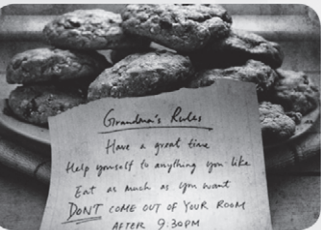 Grandma's Rules
Have a great time
Help yourself to anything you like
Eat as much as you want
DON'T COME OUT OF YOUR ROOM
AFTER 9.30PM